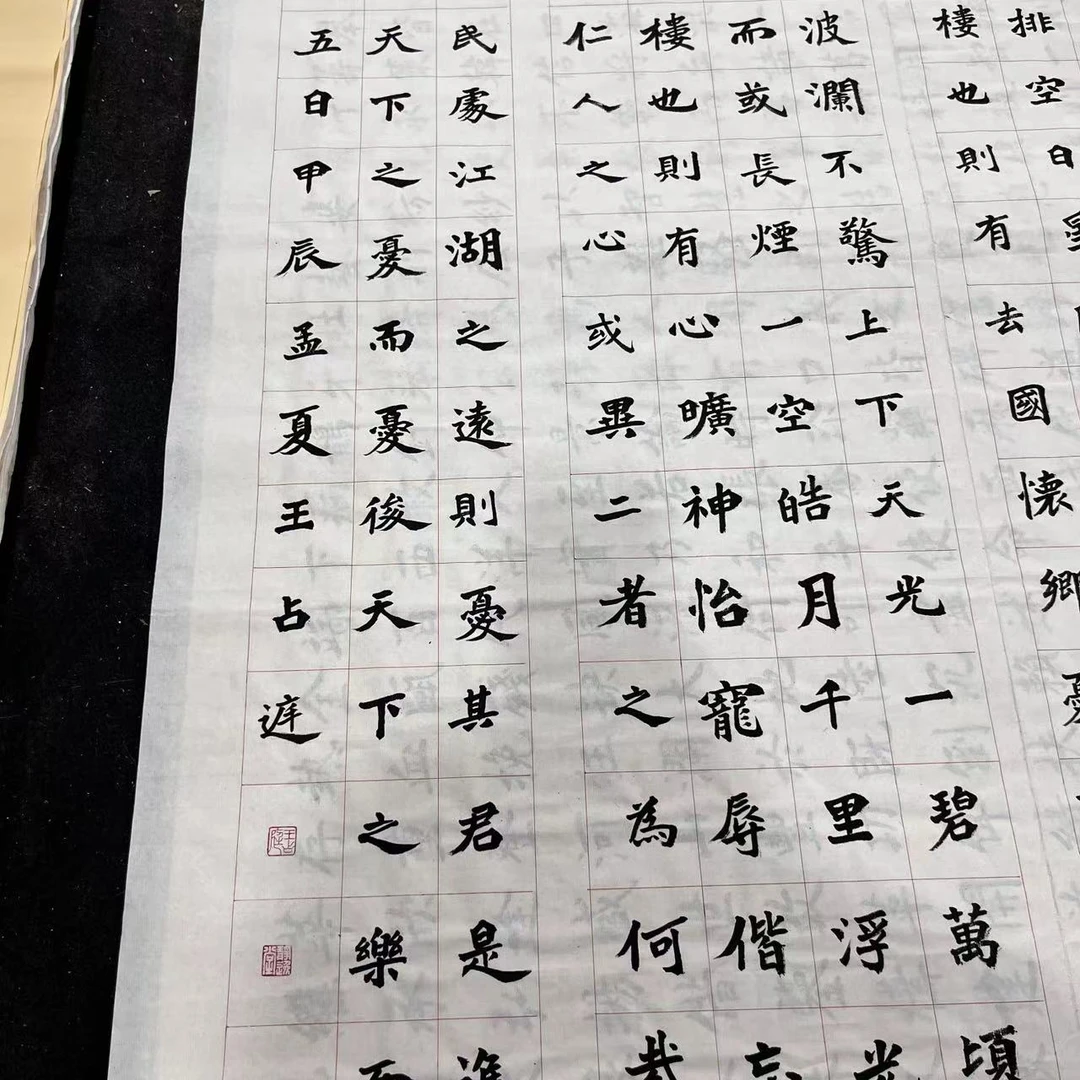 排空日
樓也則有去國懷鄉憂
波瀾不驚上下天光一碧萬頃
而或長煙一空皓月千里浮光
樓也則有心曠神怡寵辱偕忘
仁人之心或異二者之為何哉
民處江湖之遠則憂其君是進
天下之憂而憂後天下之樂而
五日甲辰孟夏王占